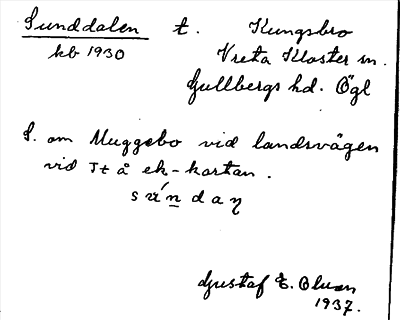 Sunddalen t. Kungsbro
kb 1930 Vreta Kloster sn.
Gullbergs hd. Ögl
S. om Muggebo vid landsvägen
vid It å ek-kartan.
Gustaf E.
1937.